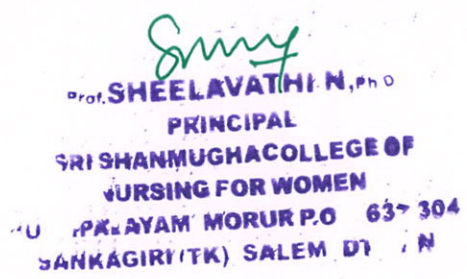 Prof. SHEELAVATHI N, Ph D
PRINCIPAL
SRI SHANMUGHA COLLEGE OF
NURSING FOR WOMEN
MORUR P.O 637 304
SANKAGIRI (TK) SALEM DT